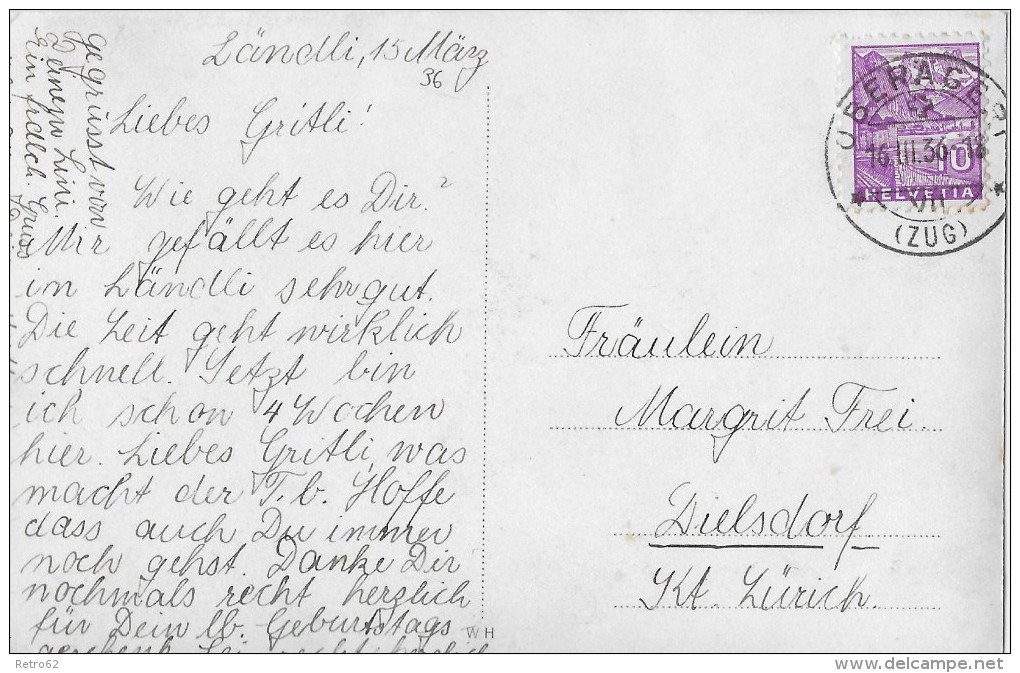 Ländli, 15 März
36
Liebes Gritli!
Wie geht es Dir?
Mir gefällt es hier
im Ländli sehr gut.
Die Zeit geht wirklich
schnell. Jetzt bin
ich schon 4 Wochen
hier. Liebes Gritli, was
macht der T. b. Hoffe
dass auch Du immer
noch gehst. Danke Dir
nochmals recht herzlich
für Dein lb. Geburtstags
geschenk. Sei recht herzlich
gegrüsst von
Deinem Lini.
Ein frdlch. Gruss
WH
OBERÄGERI
16.III.36-12
VII
(ZUG)
10
HELVETIA
Fräulein
Margrit Frei.
Dielsdorf.
Kt. Zürich.
Retro62
delcampe.net